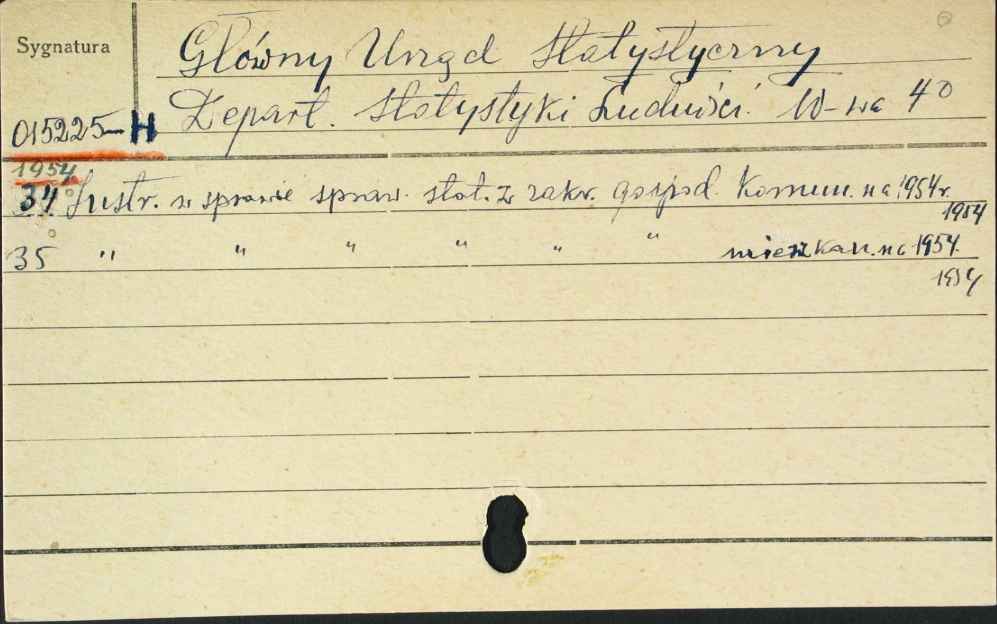 Sygnatura
Główny Urząd Statystyczny
Depart. Statystyki Ludności. W-wa 40
015225-H
1954
34 Instr. w sprawie spraw. stat. z zakr. gospod. Komun. na 1954 r.
1954
35 " " " " " " mieszkan. na 1954
1954